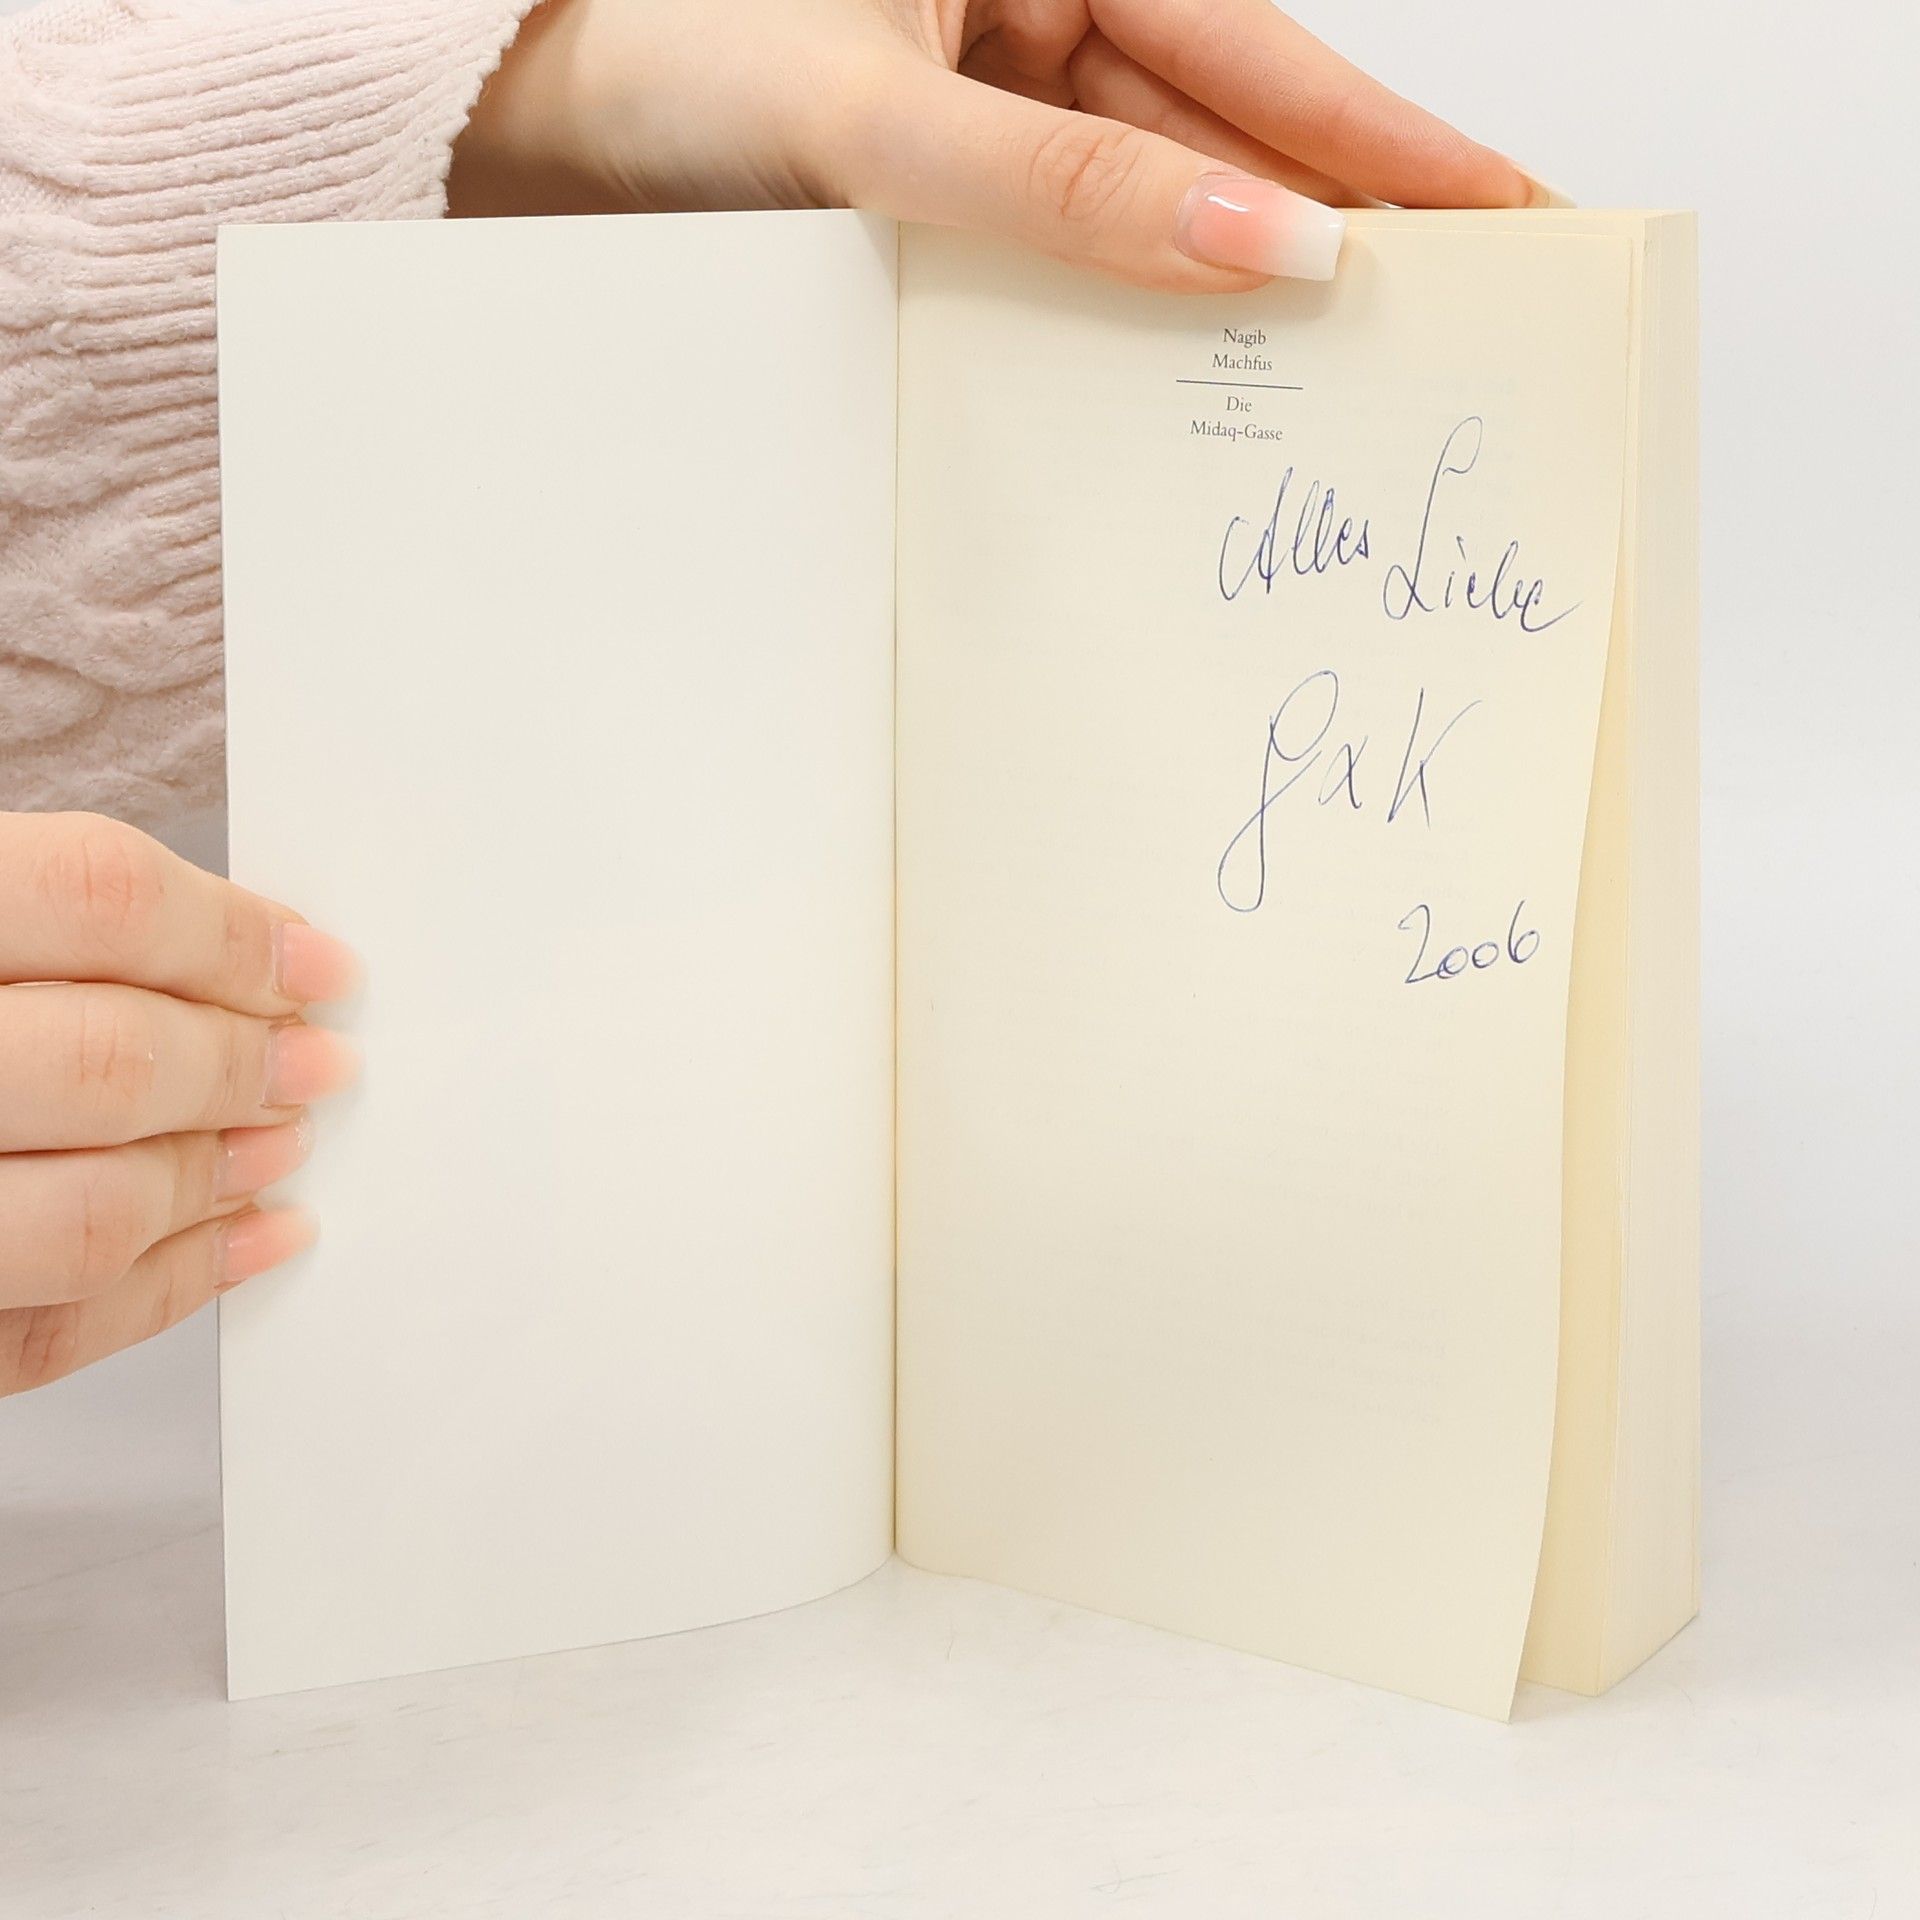 Nagib
Machfus
Die
Midaq-Gasse
Alles Liebe
K
2006